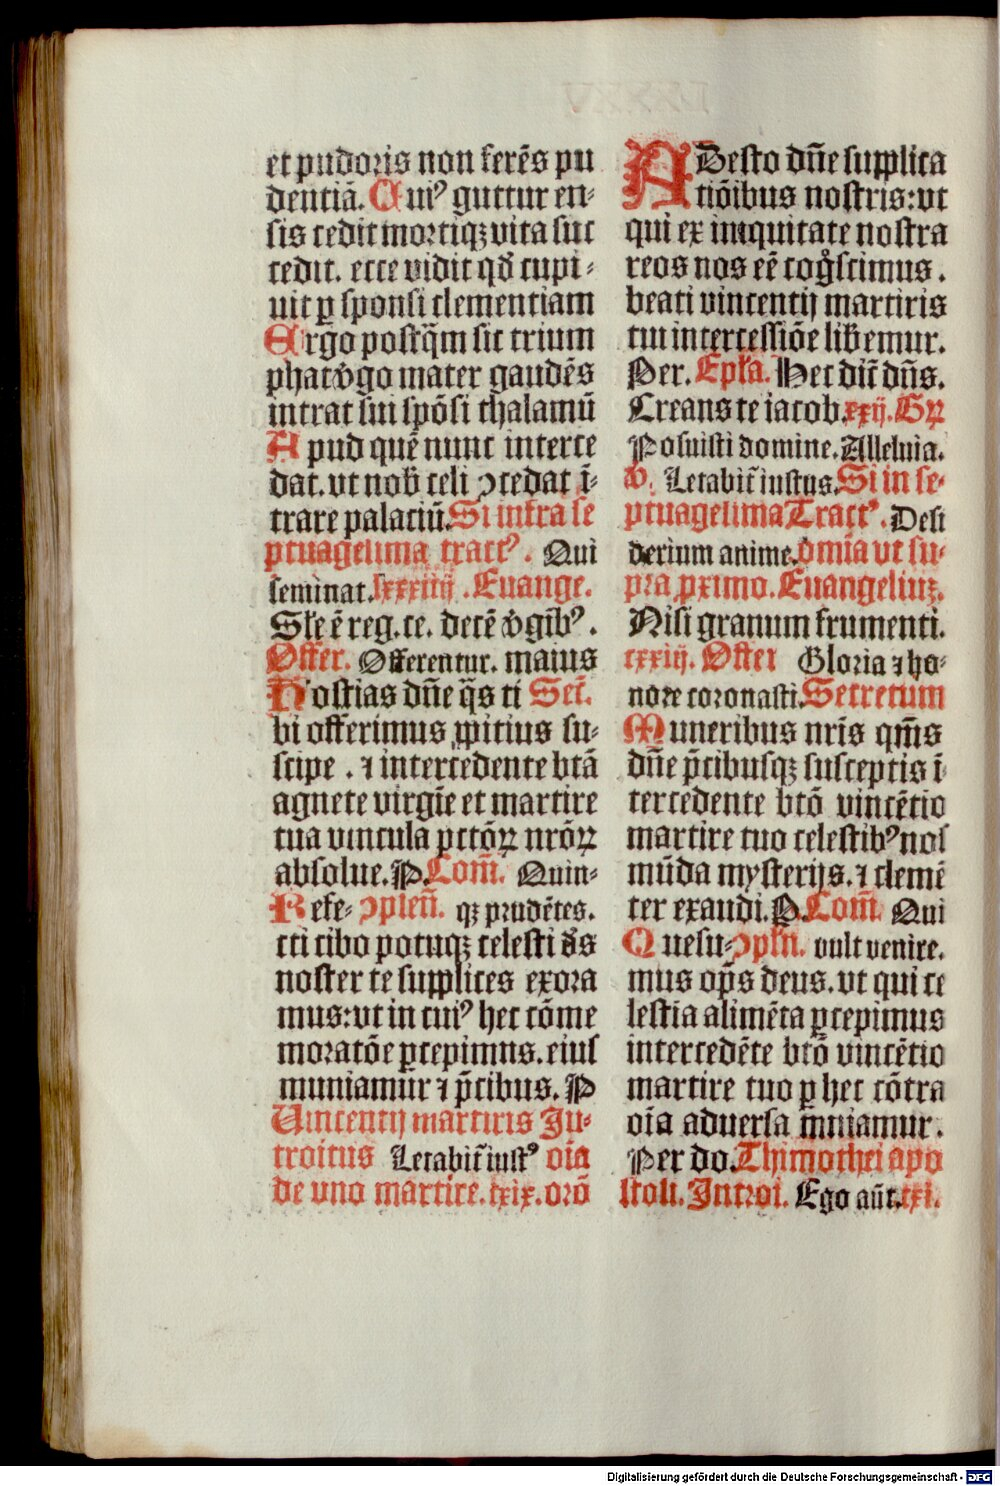 et pudoris non ferēs pu
dentiā. Cuiꝰ guttur en-
sis cedit mortiqꝫ vita suc
cedit. ecce vidit qđ cupi-
uit ꝑ sponsi clementiam
Ergo postq̄m sic trium
phat ꝟgo mater gaudēs
intrat sui spōsi thalamū
Apud quē nunc interce
dat. vt nob̄ celi ꝯcedat ī-
trare palaciū. Si infra se
ptuagesima tractꝰ. Qui
seminat. lxxxiiij. Euange.
Sīle ē reg. ce. decē ꝟgibꝰ.
Offer. Offerentur. maius
Hostias dn̄e q̄s ti Secr̄.
bi offerimus ꝓpitius su-
scipe. ⁊ intercedente btā
agnete virgīe et martire
tua vincula pctōꝝ nrōꝝ
absolue. P. Com̄. Quin-
Refe- ꝯplen̄. qꝫ prudētes.
cti cibo potuqꝫ celesti ds̄
noster te supplices exora
mus: vt in cuiꝰ hec cōme
moratōe ꝑcepimus. eius
muniamur ⁊ p̄cibus. P
Uincentij martiris In-
troitus Letabit̄ iustꝰ oīa
de vno martire. cxix. orō
ADesto dn̄e supplica
tiōibus nostris: vt
qui ex iniquitate nostra
reos nos eē cogͦscimus.
beati vincentij martiris
tui intercessiōe liberemur.
Per. Epl̄a. Hec dic̄ dn̄s.
Creans te iacob. xxij. Gꝝ
Posuisti domine. Alleluia.
ꝟ. Letabit̄ iustus. Si in se-
ptuagesima Tractꝰ. Desi
derium anime. omīa vt su-
pra ꝓximo. Euangeliuꝫ.
Nisi granum frumenti.
cxxiij. Offer Gloria ⁊ ho-
nore coronasti. Secretum
Muneribus nrīs qm̄s
dn̄e p̄cibusqꝫ susceptis ī-
tercedente btō vincētio
martire tuo celestibꝰ nos
mūda mysterijs. ⁊ clemē
ter exaudi. P. Com̄. Qui
Quesu- ꝯpln̄. vult venire.
mus op̄s deus. vt qui ce
lestia alimēta ꝑcepimus
intercedēte btō vincētio
martire tuo ꝑ hec cōtra
oīa aduersa muniamur.
Per do. Thimothei apo
stoli. Introi. Ego aūt. cxi.
Digitalisierung gefördert durch die Deutsche Forschungsgemeinschaft - DFG